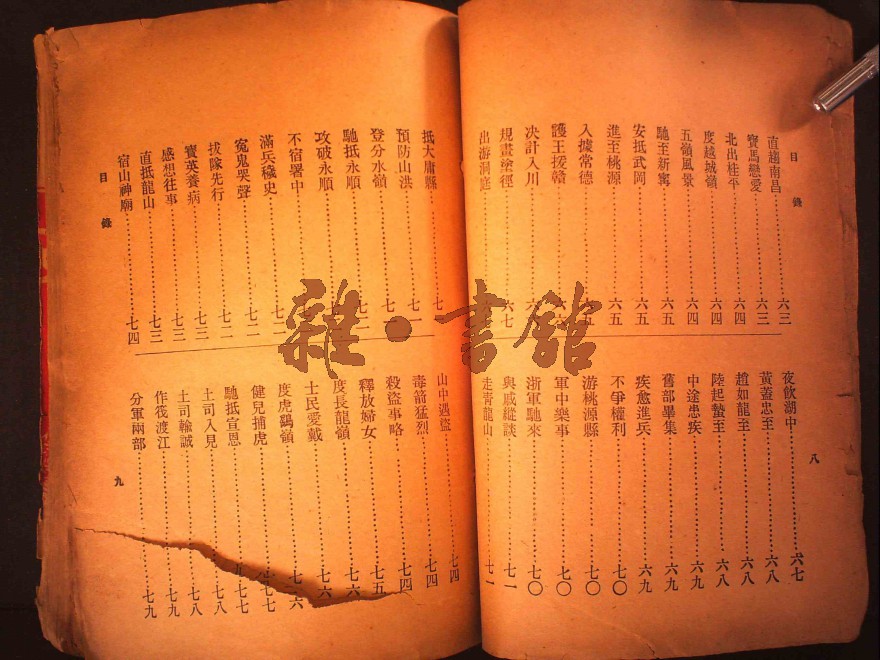 目錄
直趨南昌 六三
寶馬戀愛 六三
北出桂平 六四
度越城嶺 六四
五嶺風景 六四
馳至新寗 六五
安抵武岡 六五
進至桃源 六五
入據常德
護王援贛
決計入川
規畫塗徑 六七
出游洞庭
夜飲湖中 六七
黃蓋忠至 六八
趙如龍至 六八
陸起蟄至 六八
中途患疾 六九
舊部畢集 六九
疾愈進兵 六九
不爭權利 七〇
游桃源縣 七〇
軍中樂事 七〇
浙軍馳來 七〇
與戚縱談 七一
走青龍山 七一
八
抵大庸縣
預防山洪 七一
登分水嶺
馳抵永順
攻破永順
不宿署中
滿兵穢史
寃鬼哭聲 七二
拔隊先行 七二
寶英養病 七三
感想往事 七三
直抵龍山 七三
宿山神廟 七四
目錄
山中遇盜 七四
毒箭猛烈 七四
殺盜事略 七四
釋放婦女 七五
度長龍嶺 七六
士民愛戴 七六
度虎鷂嶺
健兒捕虎 七七
馳抵宣恩 七七
土司入見 七八
土司輸誠 七八
作筏渡江 七九
分軍兩部 七九
九
雜·書館